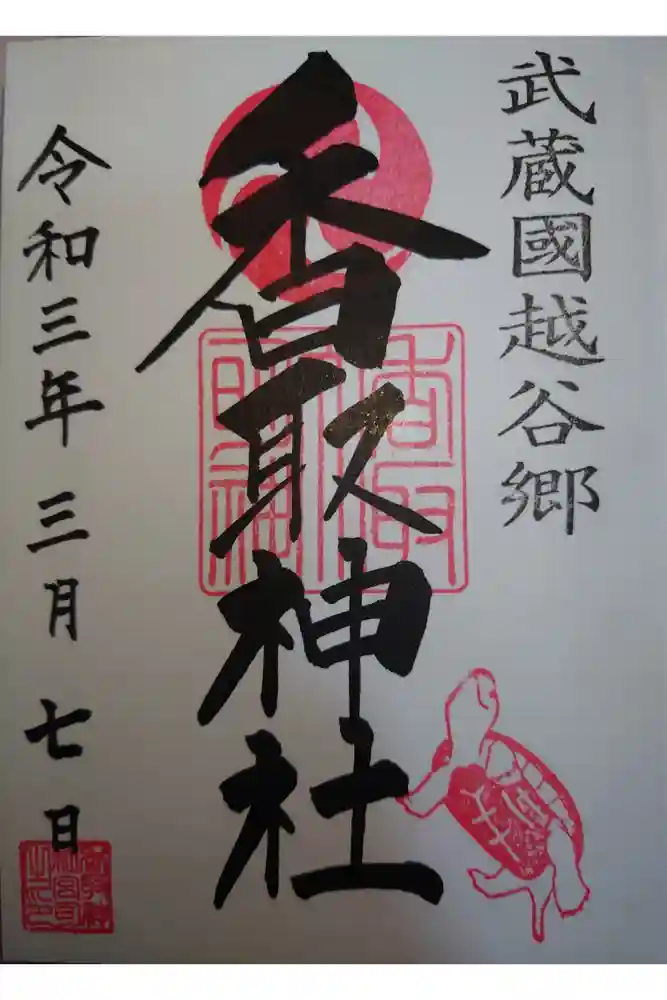 武蔵國越谷郷
香取神社
令和三年三月七日